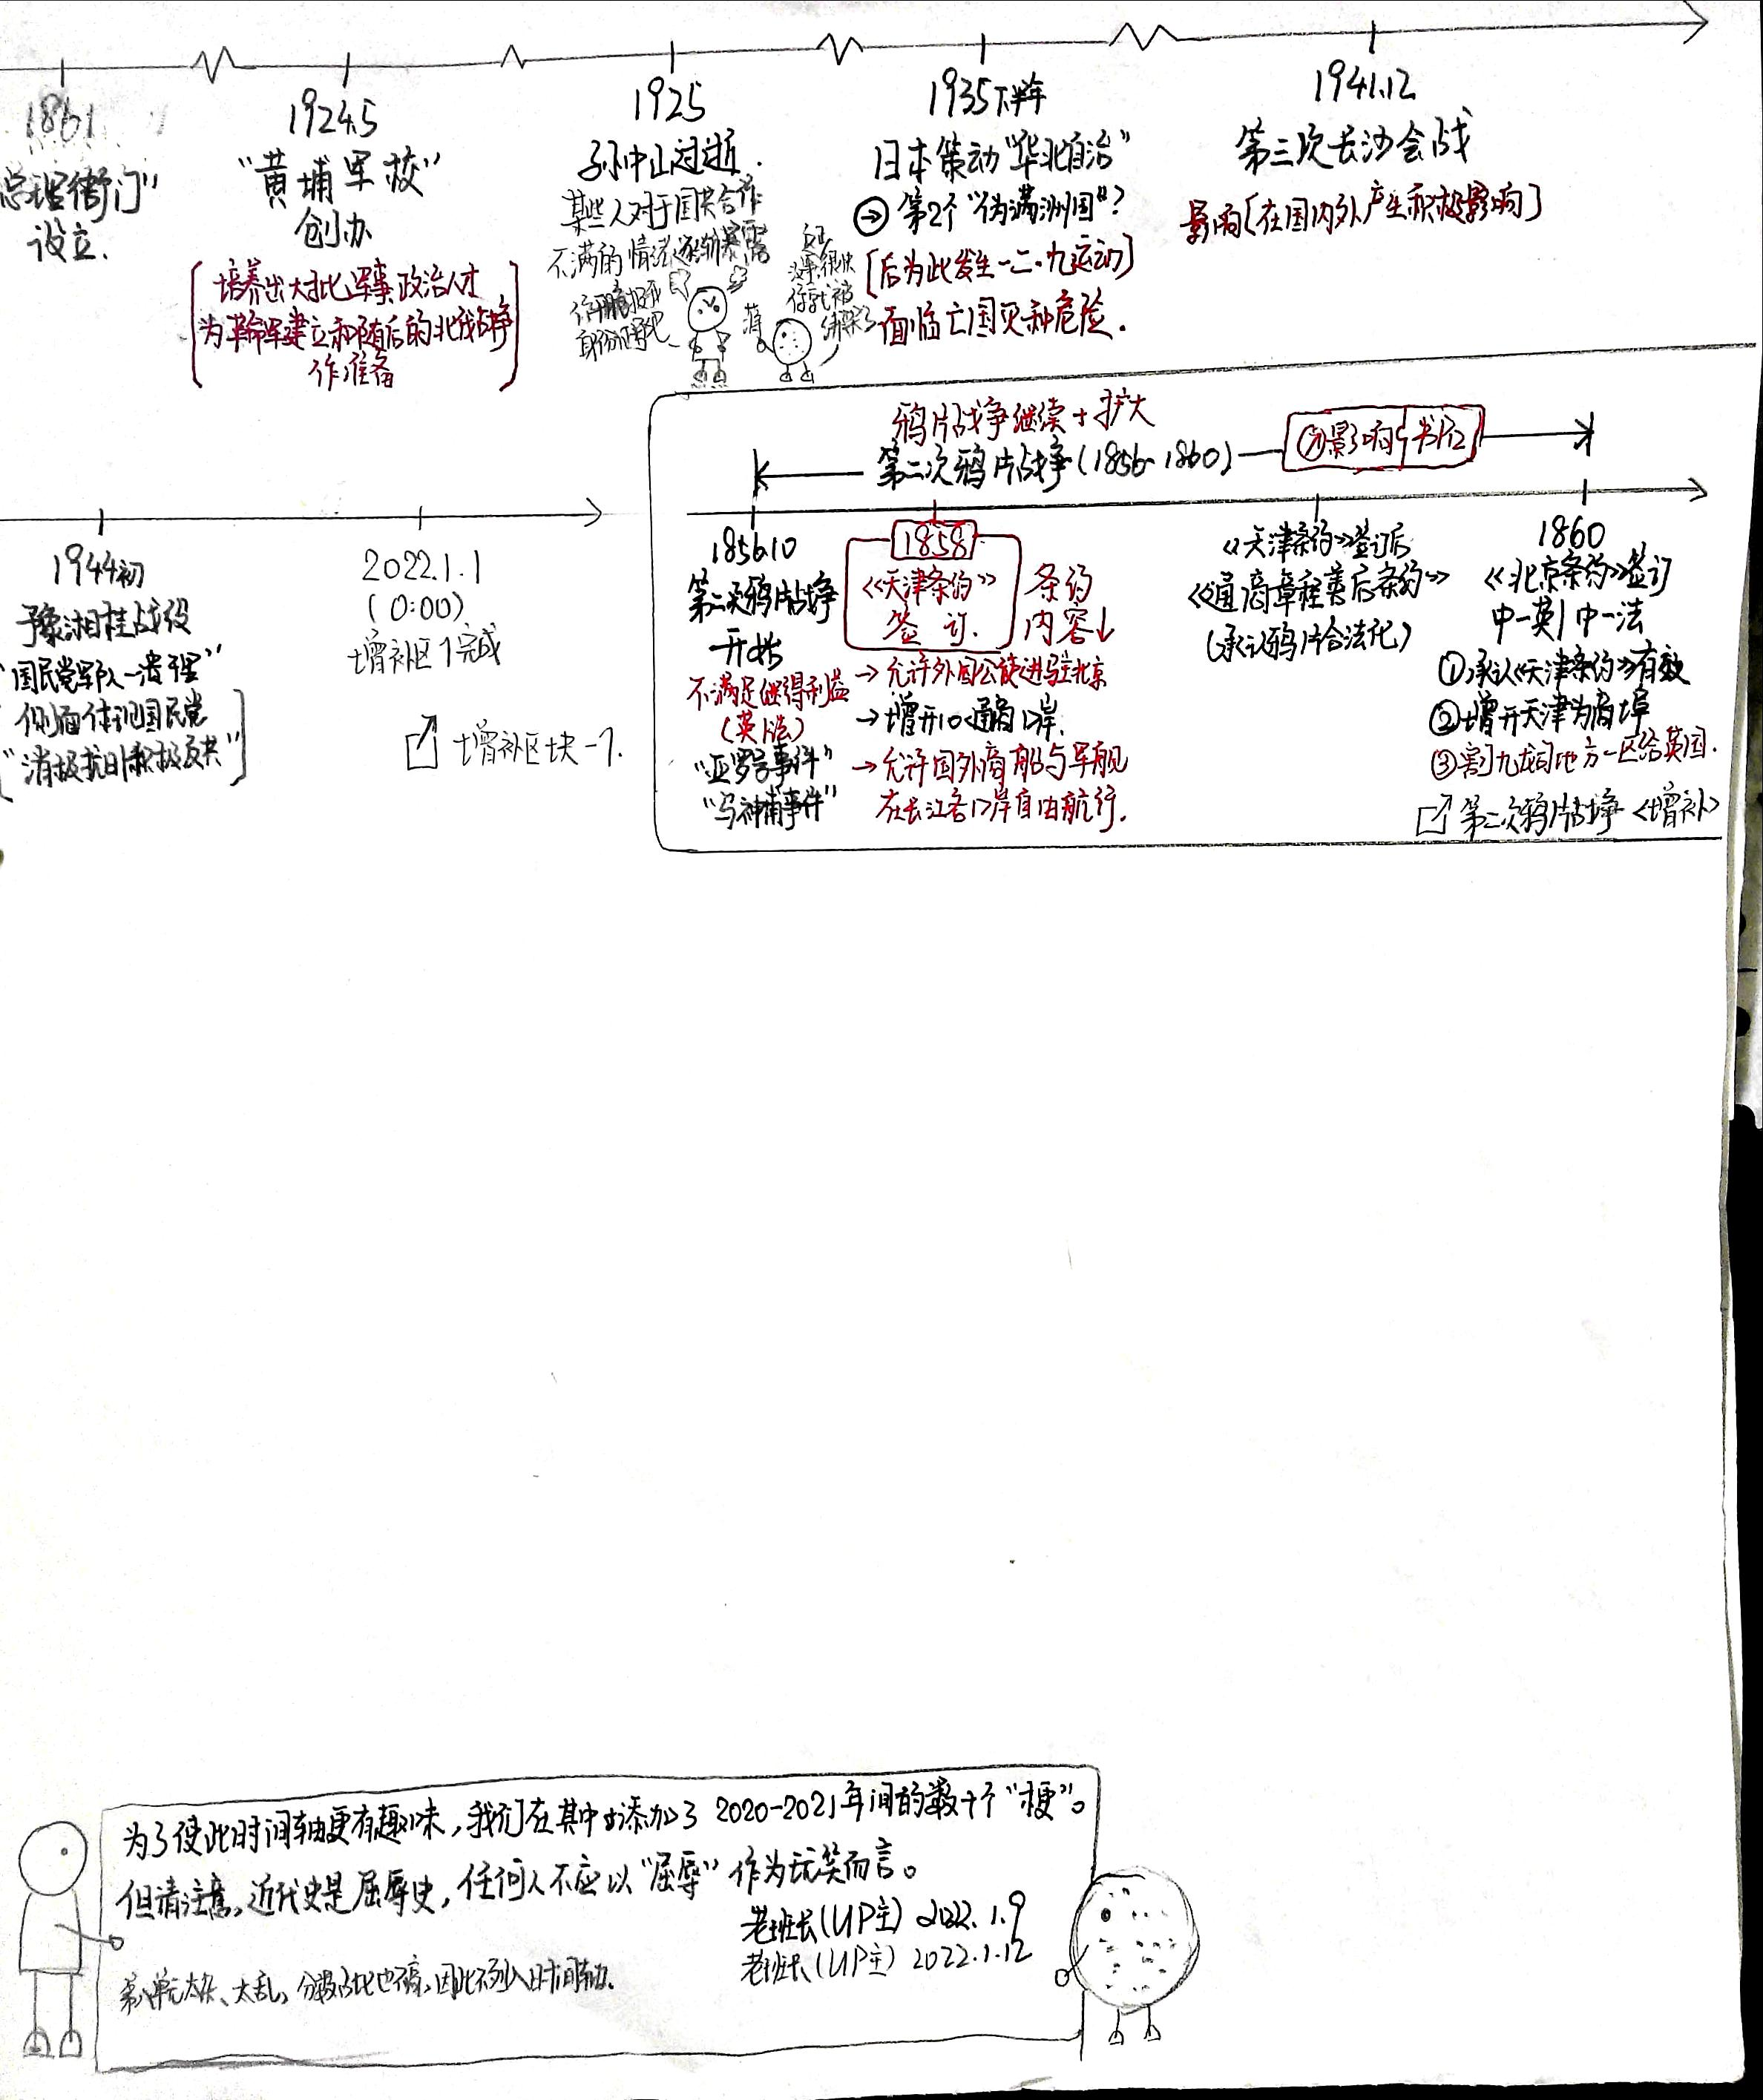 1861
"总理衙门"
设立.
1924.5
"黄埔军校"
创办
培养出大批军事政治人才
为革命军建立和随后的北伐战争
作准备
1925
孙中山过逝.
某些人对于国共合作
不满的情绪逐渐暴露
1935下半年
日本策动"华北自治"
→第2个"伪满洲国"?
[后为此发生一二·九运动]
面临亡国灭种危险.
1941.12
第三次长沙会战
影响[在国内外产生积极影响]
1944初
豫湘桂战役
"国民党军队一溃千里"
侧面体现国民党
"消极抗日积极反共"
2022.1.1
(0:00)
增补区1完成
增补区块-1.
鸦片战争继续+扩大
第二次鸦片战争(1856-1860)
影响 书P12
1856.10
第二次鸦片战争
开始
不满足继得利益
(英法)
"亚罗号事件"
"马神甫事件"
1858
《天津条约》
签订.
条约
内容↓
→允许外国公使进驻北京
→增开10处通商口岸.
→允许国外商船与军舰
在长江各口岸自由航行.
《天津条约》签订后
《通商章程善后条约》
(承认鸦片合法化)
1860
《北京条约》签订
中-英|中-法
①承认《天津条约》有效
②增开天津为商埠
③割九龙司地方一区给英国.
第二次鸦片战争<增补>
为了使此时间轴更有趣味,我们在其中添加了2020-2021年间的数十个"梗"。
但请注意,近代史是屈辱史,任何人不应以"屈辱"作为玩笑而言。
老班长(UP主) 2022.1.9
老班长(UP主) 2022.1.12
第八单元太杂、太乱,分数占比也不高,因此不列入时间轴.